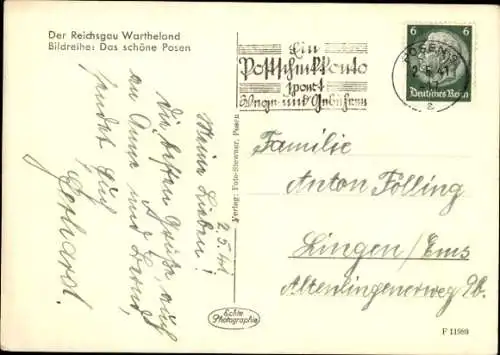 Der Reichsgau Wartheland
Bildreihe: Das schöne Posen
Ein
Postscheckkonto
spart
Wege und Gebühren
POSEN 9
2
6
6
Deutsches Reich
2.5.41
Meine Lieben!
Die besten Grüße auch
an Anna und
sendet Euch
Gerhard.
Verlag: Foto-Stewner, Posen
Echte
Photographie
Familie
Anton Fölling
Lingen/Ems
Altenlingenerweg
F 11989